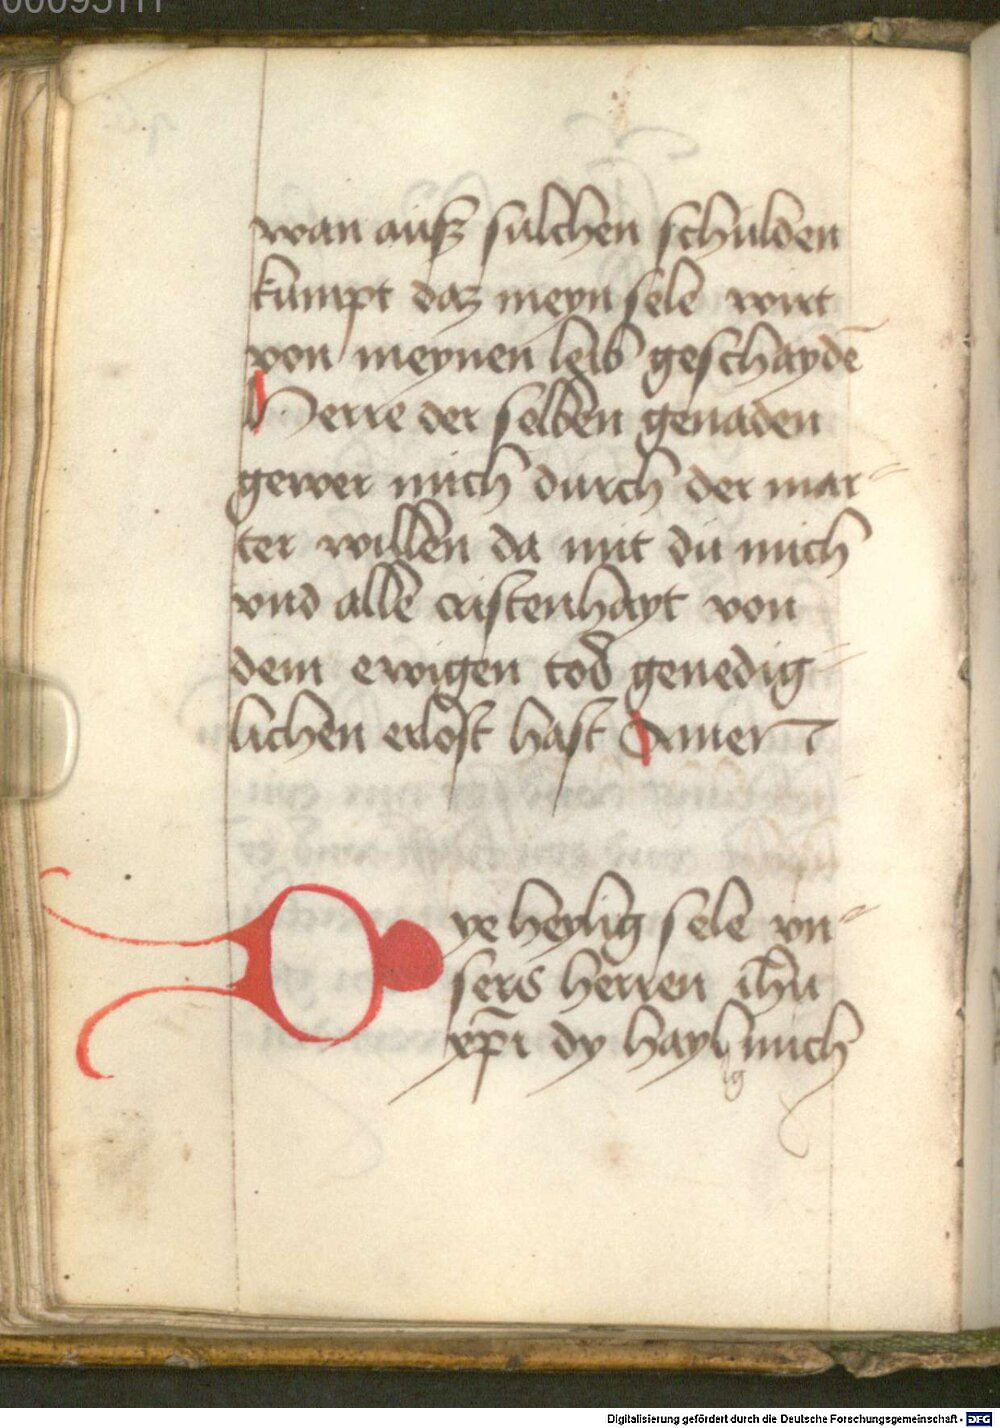 00095111
wan auß sulchen schulden
kumpt daz meyn sele wirt
von meynen leib geschaydē
Herre der selben genaden
gewer mich durch der mar-
ter willen da mit du mich
vnd alle cristenhayt von
dem ewigen tod genedig-
lichen erlost hast Amen
Dye heylig sele vn-
sers herren ih̄u
xp̄i dy hayl mich
ig
Digitalisierung gefördert durch die Deutsche Forschungsgemeinschaft - DFG